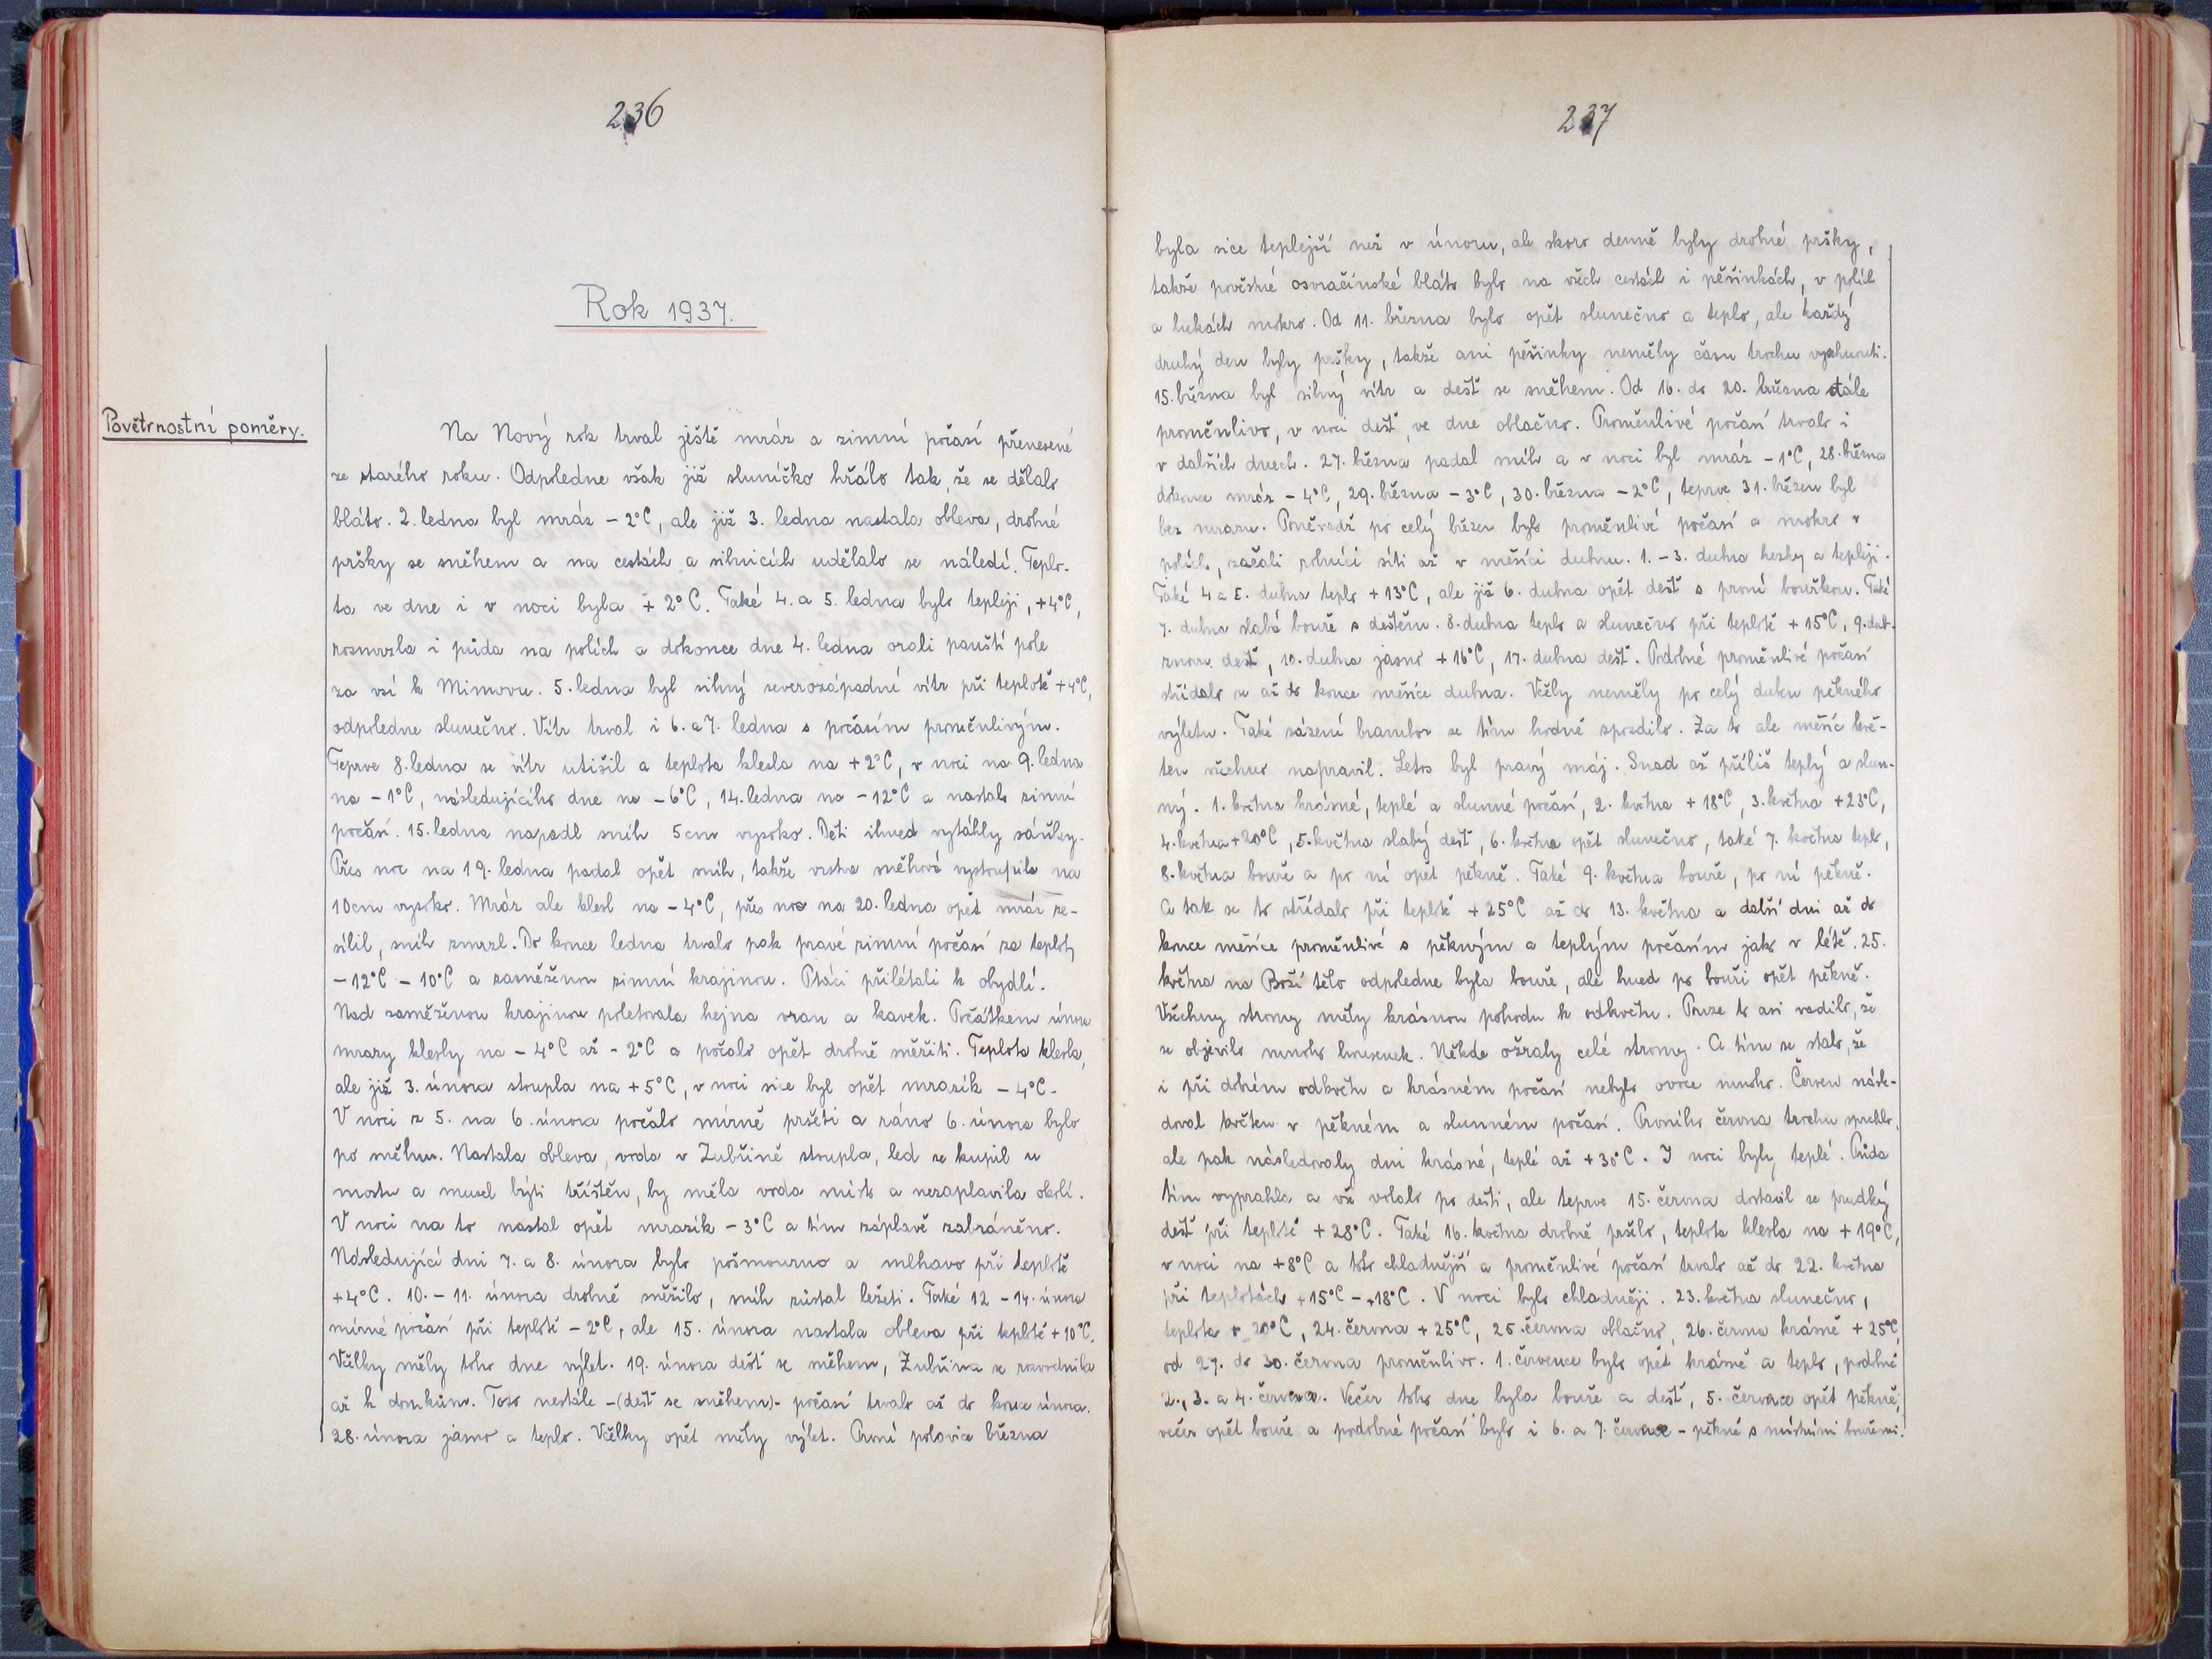 236
Rok 1937.
Povětrnostní poměry.
Na Nový rok trval ještě mráz a zimní počasí přenesené
ze starého roku. Odpoledne však již sluníčko hřálo tak, že se dělalo
bláto. 2. ledna byl mráz -2°C, ale již 3. ledna nastala obleva, drobné
pršky se sněhem a na cestách a silnicích udělalo se náledí. Teplo-
ta ve dne i v noci byla +2°C. Také 4. a 5. ledna bylo tepleji, +4°C,
rozmrzla i půda na polích a dokonce dne 4. ledna orali pouští pole
za vsí k Mimovu. 5. ledna byl silný severozápadní vítr při teplotě +4°C,
odpoledne slunečno. Vítr trval i 6. a 7. ledna s počasím proměnlivým.
Teprve 8. ledna se vítr utišil a teplota klesla na +2°C, v noci na 9. ledna
na -1°C, následujícího dne na -6°C, 14. ledna na -12°C a nastalo zimní
počasí. 15. ledna napadl sníh 5cm vysoko. Děti ihned vytáhly sáňky.
Přes noc na 19. ledna padal opět sníh, takže vrstva sněhová vystoupila na
10cm vysoko. Mráz ale klesl na -4°C, přes noc na 20. ledna opět mráz ze-
sílil, sníh zmrzl. Do konce ledna trvalo pak pravé zimní počasí za teploty
-12°C - 10°C a zasněženou zimní krajinou. Ptáci přilétali k obydlí.
Nad zasněženou krajinou poletovala hejna vran a kavek. Počátkem února
mrazy klesly na -4°C až -2°C a počalo opět drobně sněžiti. Teplota klesla,
ale již 3. února stoupla na +5°C, v noci sice byl opět mrazík -4°C.
V noci z 5. na 6. února počalo mírně pršeti a ráno 6. února bylo
po sněhu. Nastala obleva, voda v Zubřině stoupla, led se kupil u
mostu a musel býti tříštěn, by měla voda místo a nezaplavila okolí.
V noci na to nastal opět mrazík -3°C a tím záplavě zabráněno.
Následující dni 7. a 8. února bylo pošmourno a mlhavo při teplotě
+4°C. 10. - 11. února drobně sněžilo, sníh zůstal ležeti. Také 12 - 14. února
mírné počasí při teplotě -2°C, ale 15. února nastala obleva při teplotě +10°C.
Včelky měly toho dne výlet. 19. února dešť se sněhem, Zubřina se rozvodnila
až k domkům. Toto nestálé -(dešť se sněhem)- počasí trvalo až do konce února.
28. února jasno a teplo. Včelky opět měly výlet. První polovice března
237
byla sice teplejší než v únoru, ale skoro denně byly drobné pršky,
takže pověstné osvračínské bláto bylo na všech cestách i pěšinkách, v polích
a lukách mokro. Od 11. března bylo opět slunečno a teplo, ale každý
druhý den byly pršky, takže ani pěšinky neměly času trochu vyschnouti.
15. března byl silný vítr a dešť se sněhem. Od 16. do 20. března stále
proměnlivo, v noci dešť, ve dne oblačno. Proměnlivé počasí trvalo i
v dalších dnech. 27. března padal sníh a v noci byl mráz -1°C, 28. března
dokonce mráz -4°C, 29. března -3°C, 30. března -2°C, teprve 31. březen byl
bez mrazu. Poněvadž po celý březen bylo proměnlivé počasí a mokro v
polích, začali rolníci síti až v měsíci dubnu. 1. - 3. dubna hezky a tepleji.
Také 4 a 5. dubna teplo +13°C, ale již 6. dubna opět dešť s první bouřkou. Také
7. dubna slabá bouře s deštěm. 8. dubna teplo a slunečno při teplotě +15°C, 9. dub.
znovu dešť, 10. dubna jasno +16°C, 17. dubna dešť. Podobné proměnlivé počasí
střídalo se až do konce měsíce dubna. Včely neměly po celý duben pěkného
výletu. Také sázení brambor se tím hodně zpozdilo. Za to ale měsíc kvě-
ten všechno napravil. Letos byl pravý máj. Snad až příliš teplý a slun-
ný. 1. května krásné, teplé a slunné počasí, 2. května +18°C, 3. května +23°C,
4. května +20°C, 5. května slabý dešť, 6. května opět slunečno, také 7. května teplo,
8. května bouře a po ní opět pěkně. Také 9. května bouře, po ní pěkně.
A tak se to střídalo při teplotě +25°C až do 13. května a další dni až do
konce měsíce proměnlivé s pěkným a teplým počasím jako v létě. 25.
května na Boží tělo odpoledne byla bouře, ale hned po bouři opět pěkně.
Všechny stromy měly krásnou pohodu k odkvětu. Pouze to asi vadilo, že
se objevilo mnoho housenek. Někde ožraly celé stromy. A tím se stalo, že
i při dobrém odkvětu a krásném počasí nebylo ovoce mnoho. Červen násle-
doval květen v pěkném a slunném počasí. Prvního června trochu sprchlo,
ale pak následovaly dni krásné, teplé až +30°C. I noci byly teplé. Půda
tím vyprahla a vše volalo po dešti, ale teprve 15. června dostavil se prudký
dešť při teplotě +28°C. Také 16. května drobně pršelo, teplota klesla na +19°C,
v noci na +8°C a toto chladnější a proměnlivé počasí trvalo až do 22. května
při teplotách +15°C - +18°C. V noci bylo chladněji. 23. května slunečno,
teplota + 20°C, 24. června +25°C, 25. června oblačno, 26. června krásně +25°C,
od 27. do 30. června proměnlivo. 1. července bylo opět krásně a teplo, podobně
2., 3. a 4. července. Večer toho dne byla bouře a dešť, 5. července opět pěkně,
večer opět bouře a podobné počasí bylo i 6. a 7. července - pěkné s místními bouřemi.